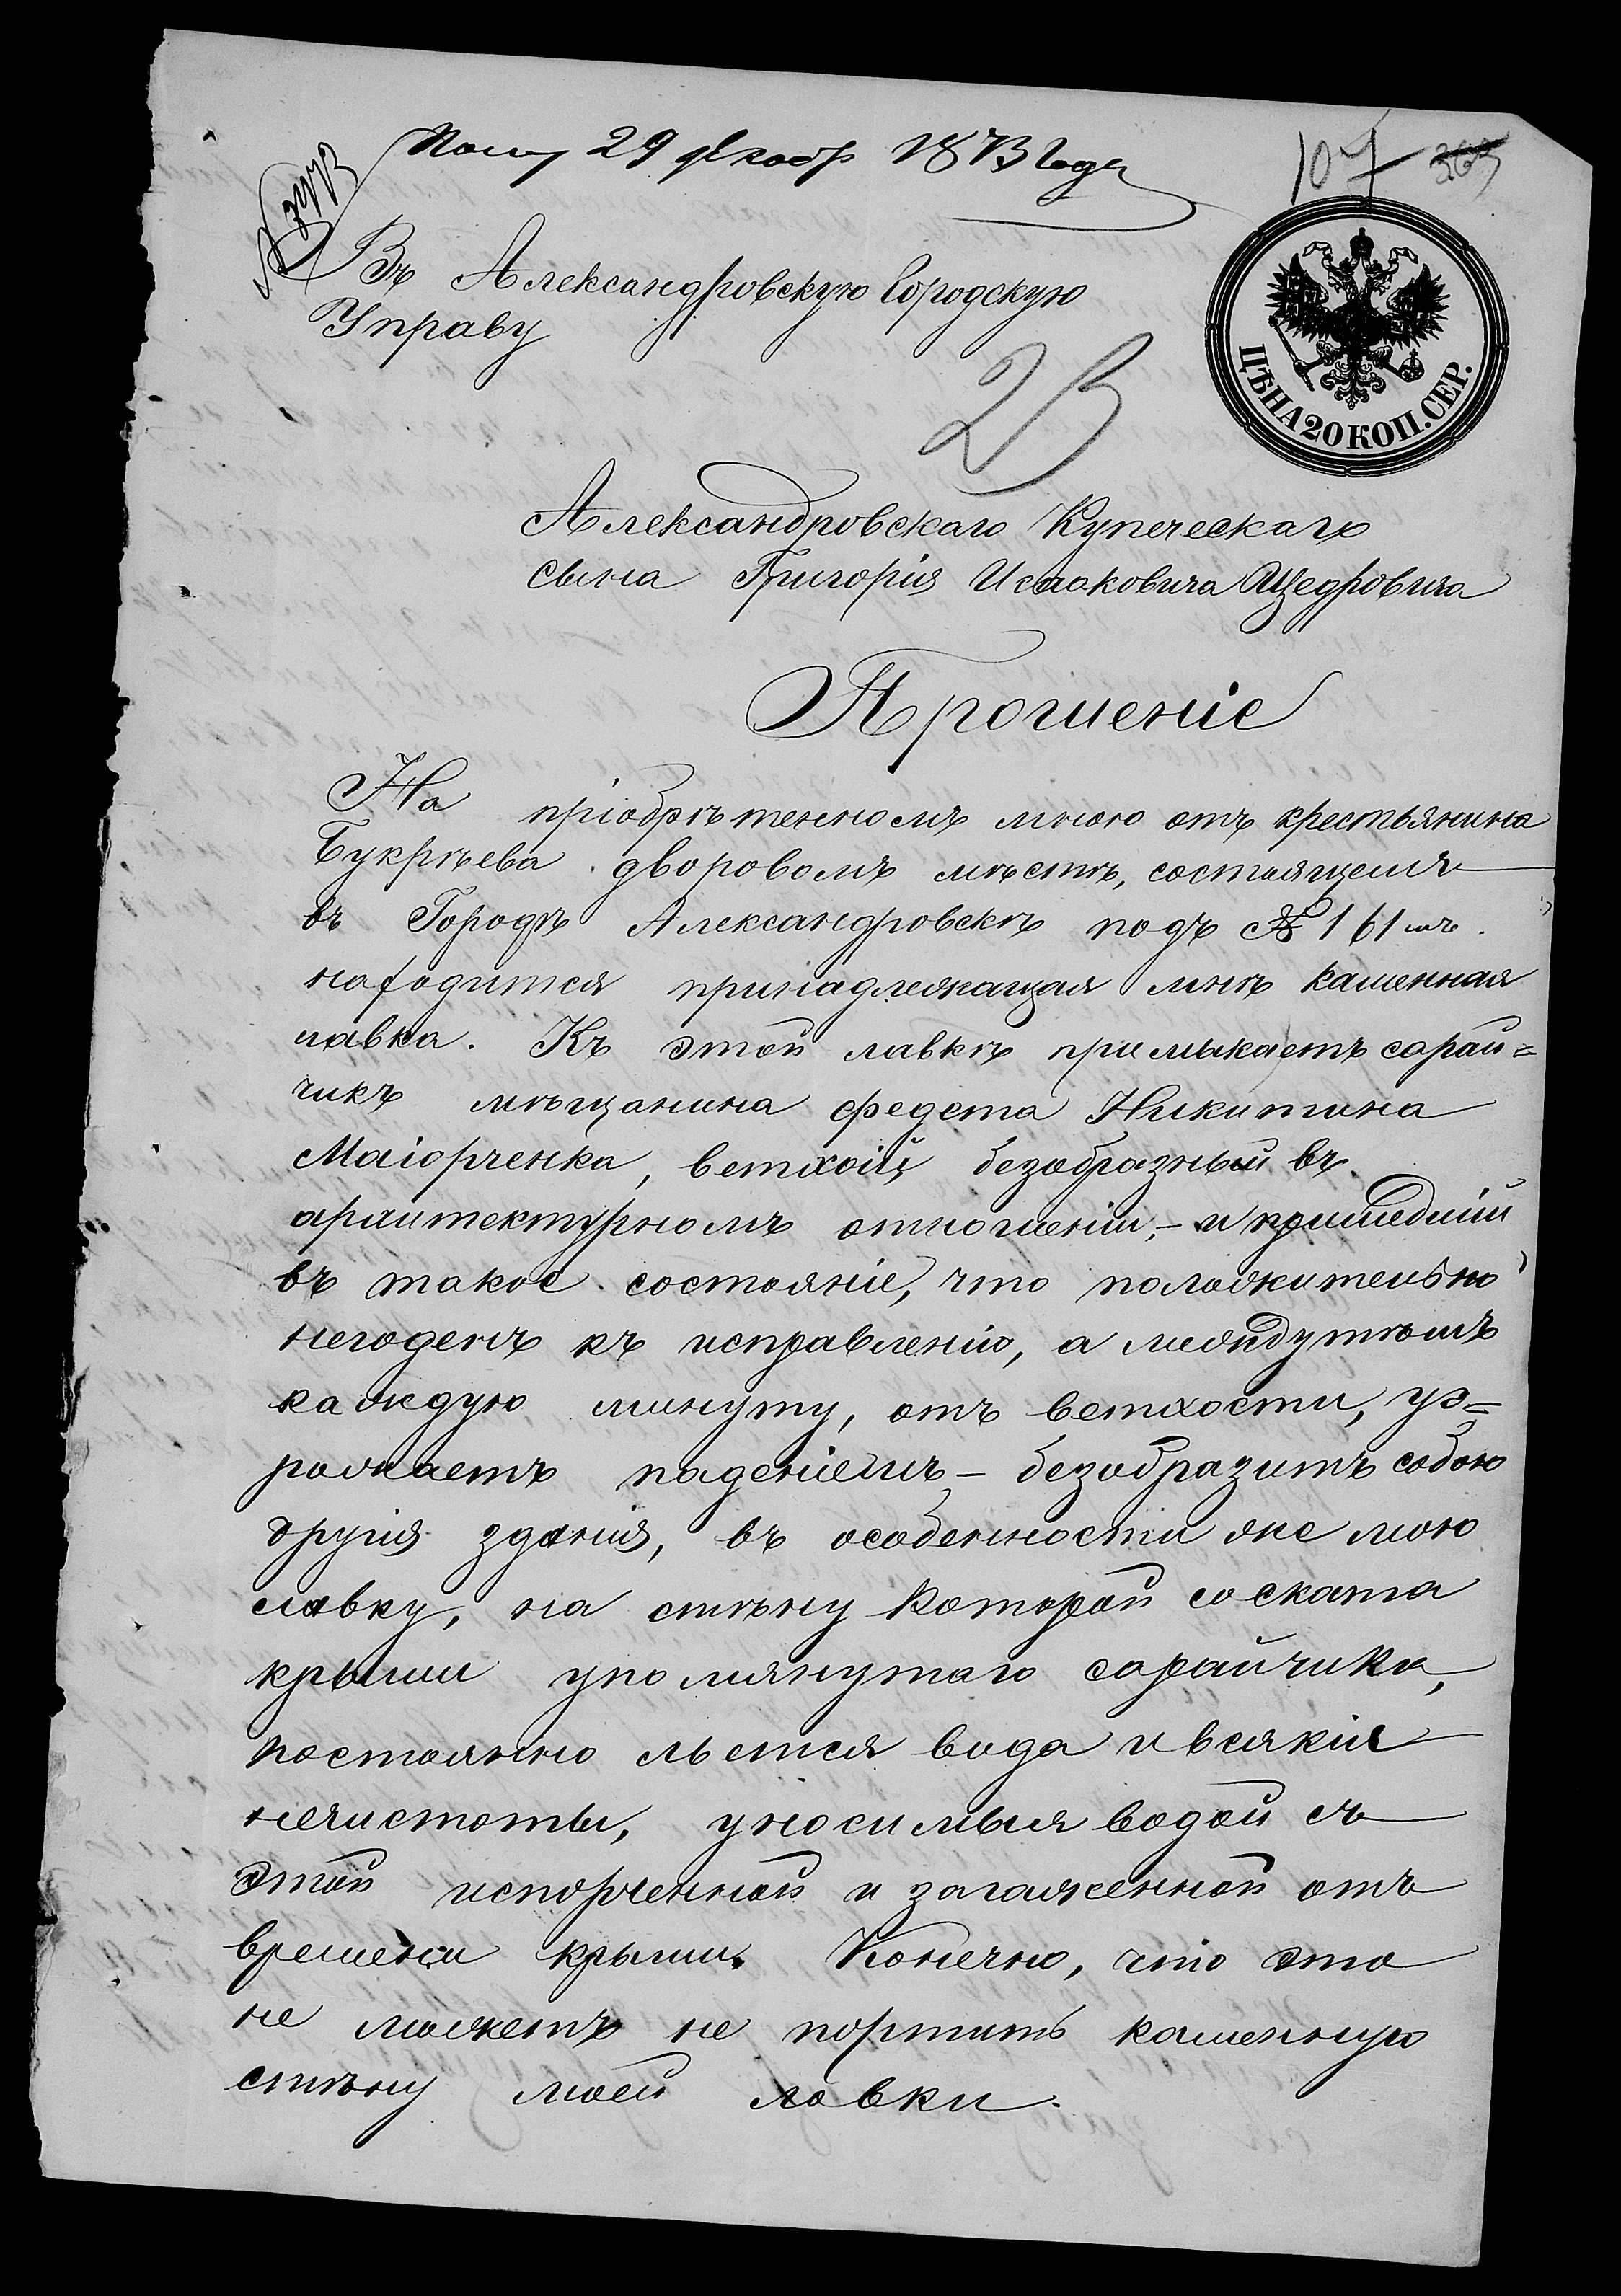 Полу 29 декабр 1873 года
107 363
№ 3473
Въ Александровскую Городскую
Управу
ЦѢНА 20 КОП. СЕР.
Александровскаго Купеческаго
сына Григорія Исааковича Щедровича
Прошеніе
На пріобрѣтенномъ мною отъ крестьянина
Букрѣева дворовомъ мѣстѣ, состоящемъ
въ Городѣ Александровскѣ подъ № 161мъ.
находится принадлежащая мнѣ каменная
лавка. Къ этой лавкѣ примыкаетъ сарай=
чикъ мѣщанина Федота Никитина
Маіорченка, ветхой, безобразный въ
архитектурномъ отношеніи,- и пришедшій
въ такое состояніе, что положительно
негоденъ къ исправленію, а междутѣмъ
каждую минуту, отъ ветхости, уг=
рожаетъ паденіемъ - безобразитъ собою
другія зданія, въ особенности же мою
лавку, на стѣну которой со ската
крыши упомянутаго сарайчика,
постоянно льется вода и всякія
нечистоты, уносимыя водой съ
этой испорченной и загаженной отъ
времени крыши. Конечно, что это
не можетъ не портить каменную
стѣну моей лавки.